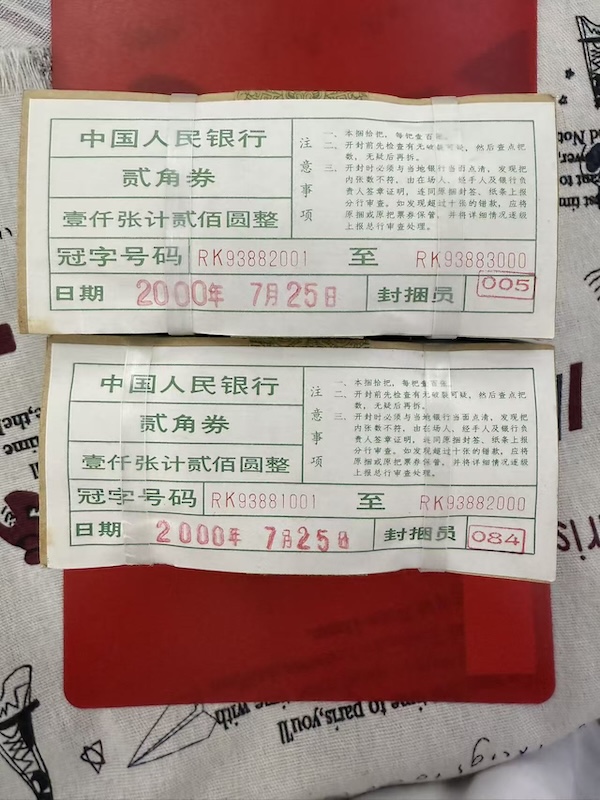 中国人民银行
贰角券
壹仟张计贰佰圆整
注意事项
一、本捆拾把，每把壹百张。
二、开封前先检查有无破裂可疑，然后查点把
数，无疑后再拆。
三、开封时必须与当地银行当面点清，发现把
内张数不符，由在场人、经手人及银行负
责人签章证明，连同原捆封签、纸条上报
分行审查。如发现超过十张的错款，应将
原捆或原把票券保管，并将详细情况逐级
上报总行审查处理。
冠字号码 RK93882001 至 RK93883000
日期 2000年 7月25日 封捆员 005
中国人民银行
贰角券
壹仟张计贰佰圆整
注意事项
一、本捆拾把，每把壹百张。
二、开封前先检查有无破裂可疑，然后查点把
数，无疑后再拆。
三、开封时必须与当地银行当面点清，发现把
内张数不符，由在场人、经手人及银行负
责人签章证明，连同原捆封签、纸条上报
分行审查。如发现超过十张的错款，应将
原捆或原把票券保管，并将详细情况逐级
上报总行审查处理。
冠字号码 RK93881001 至 RK93882000
日期 2000年 7月25日 封捆员 084
time to paris,you'll
time with